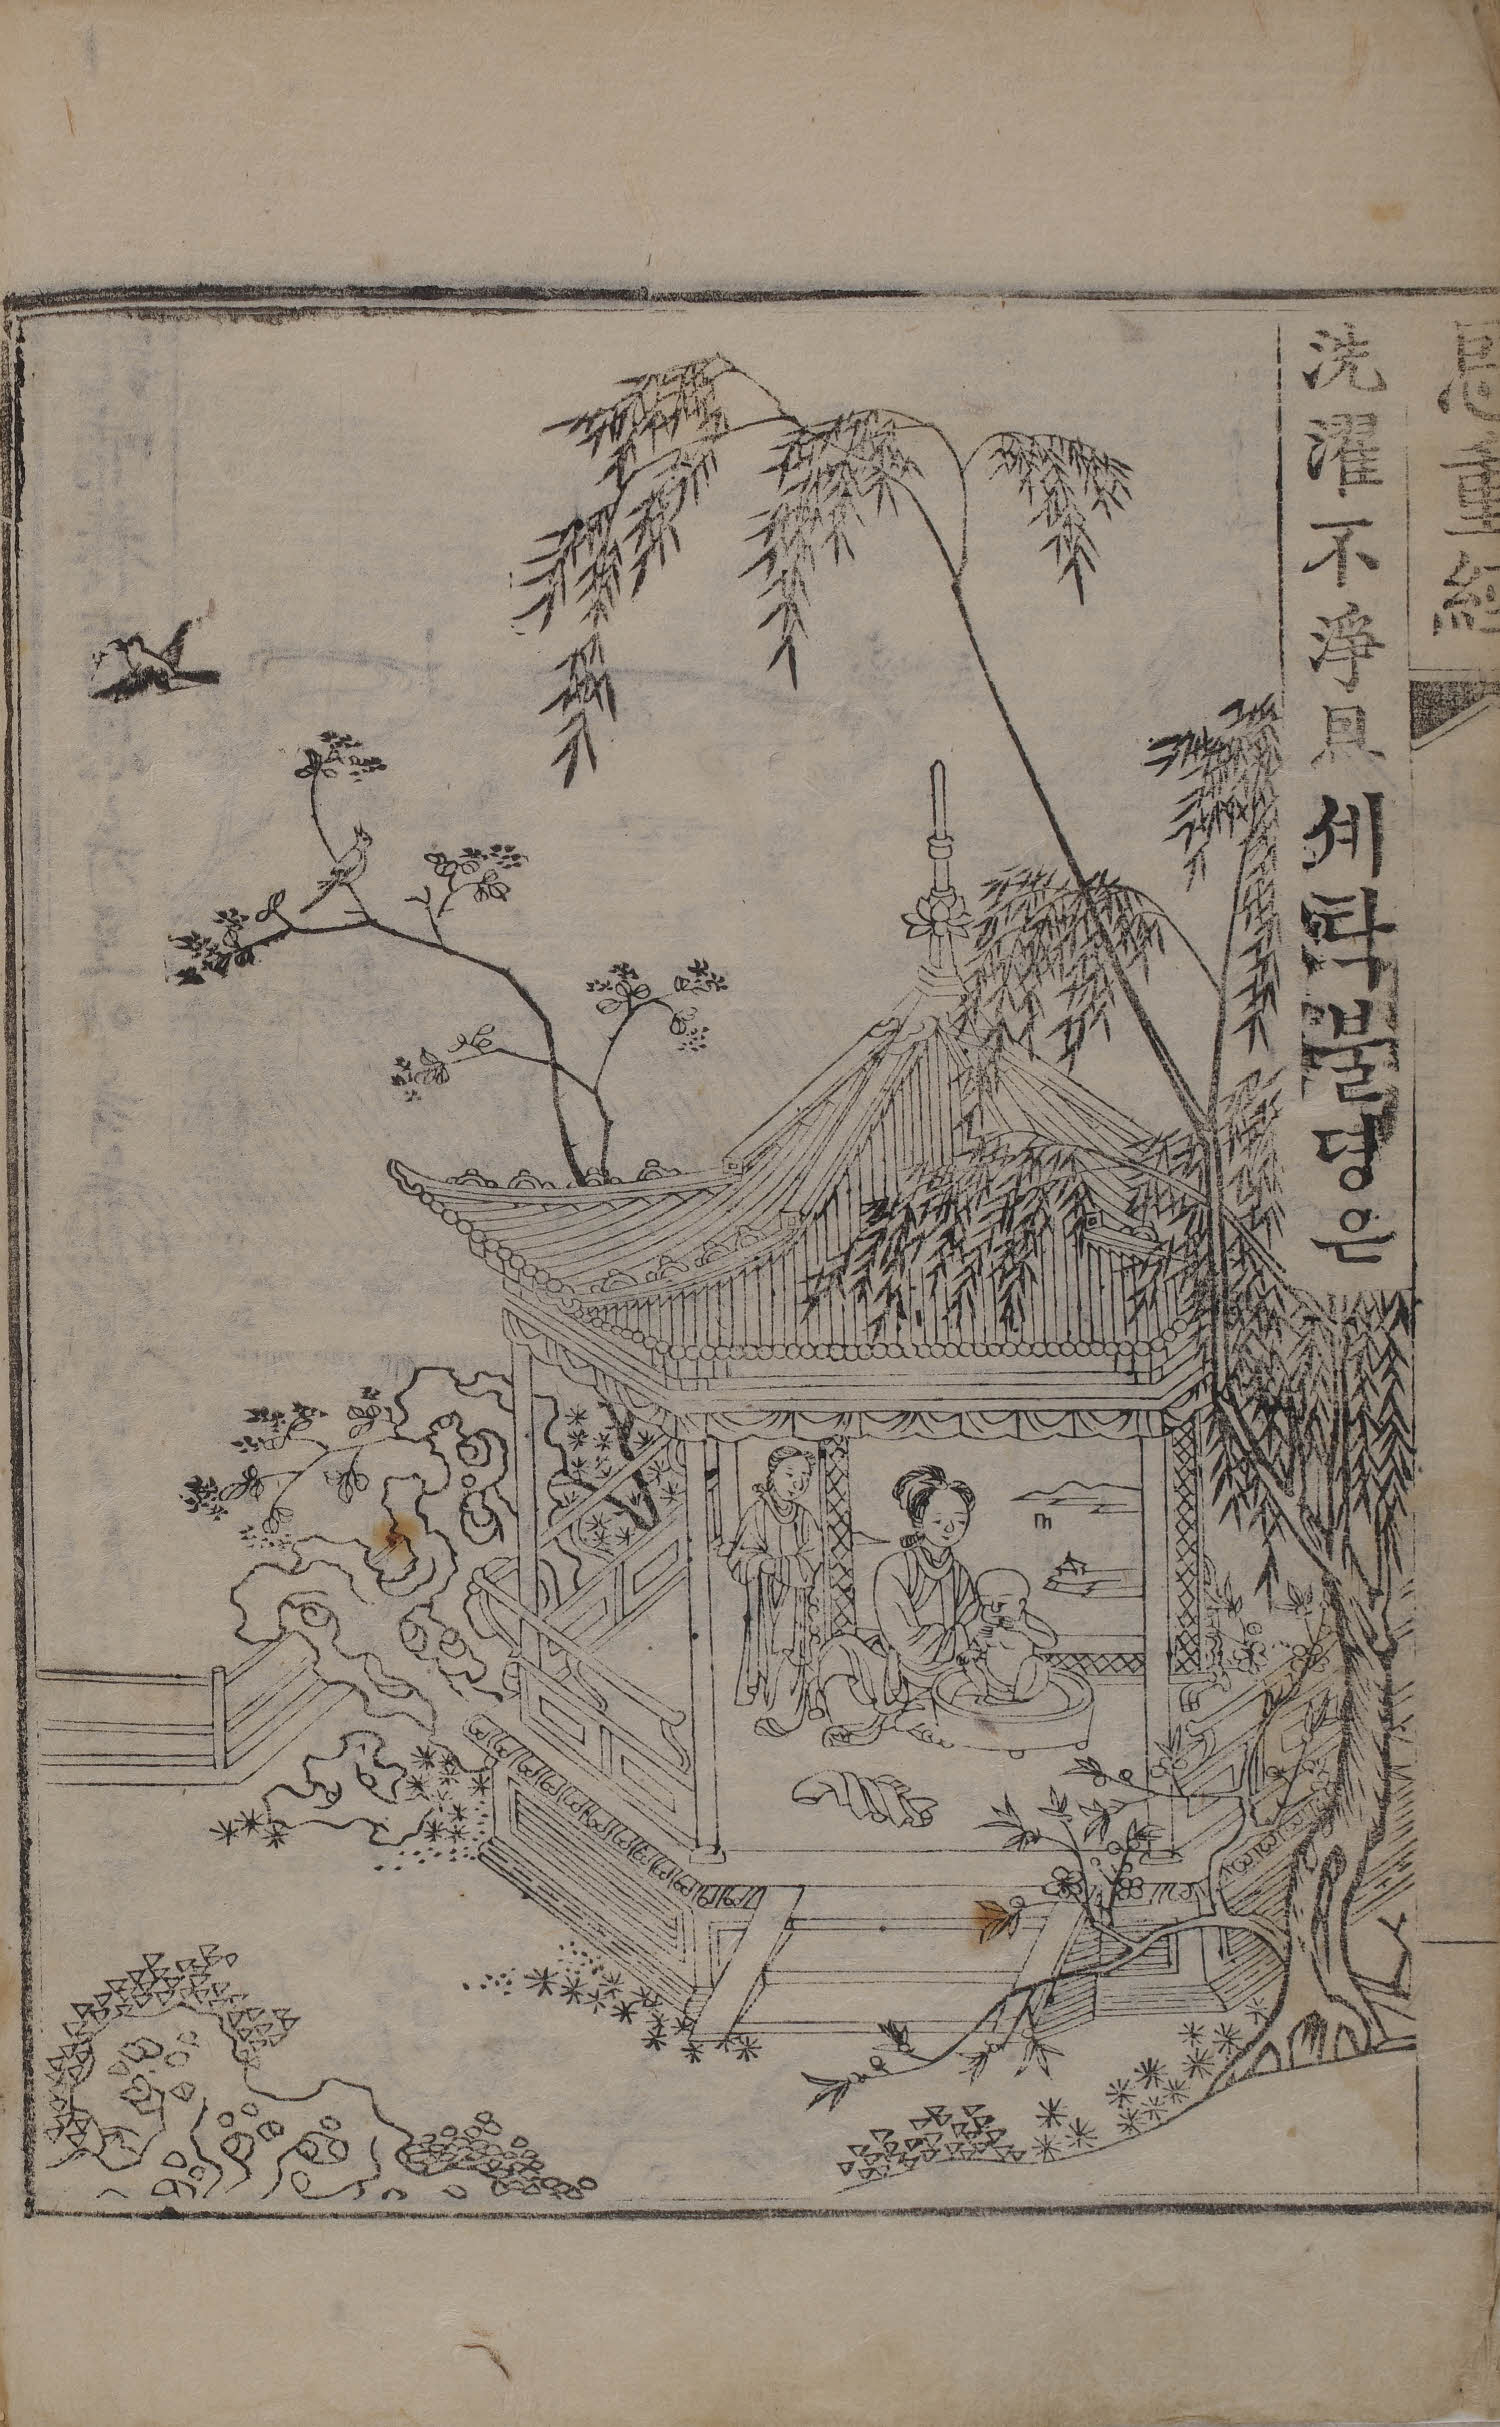 恩重經
洗濯不淨恩세탁불뎡은